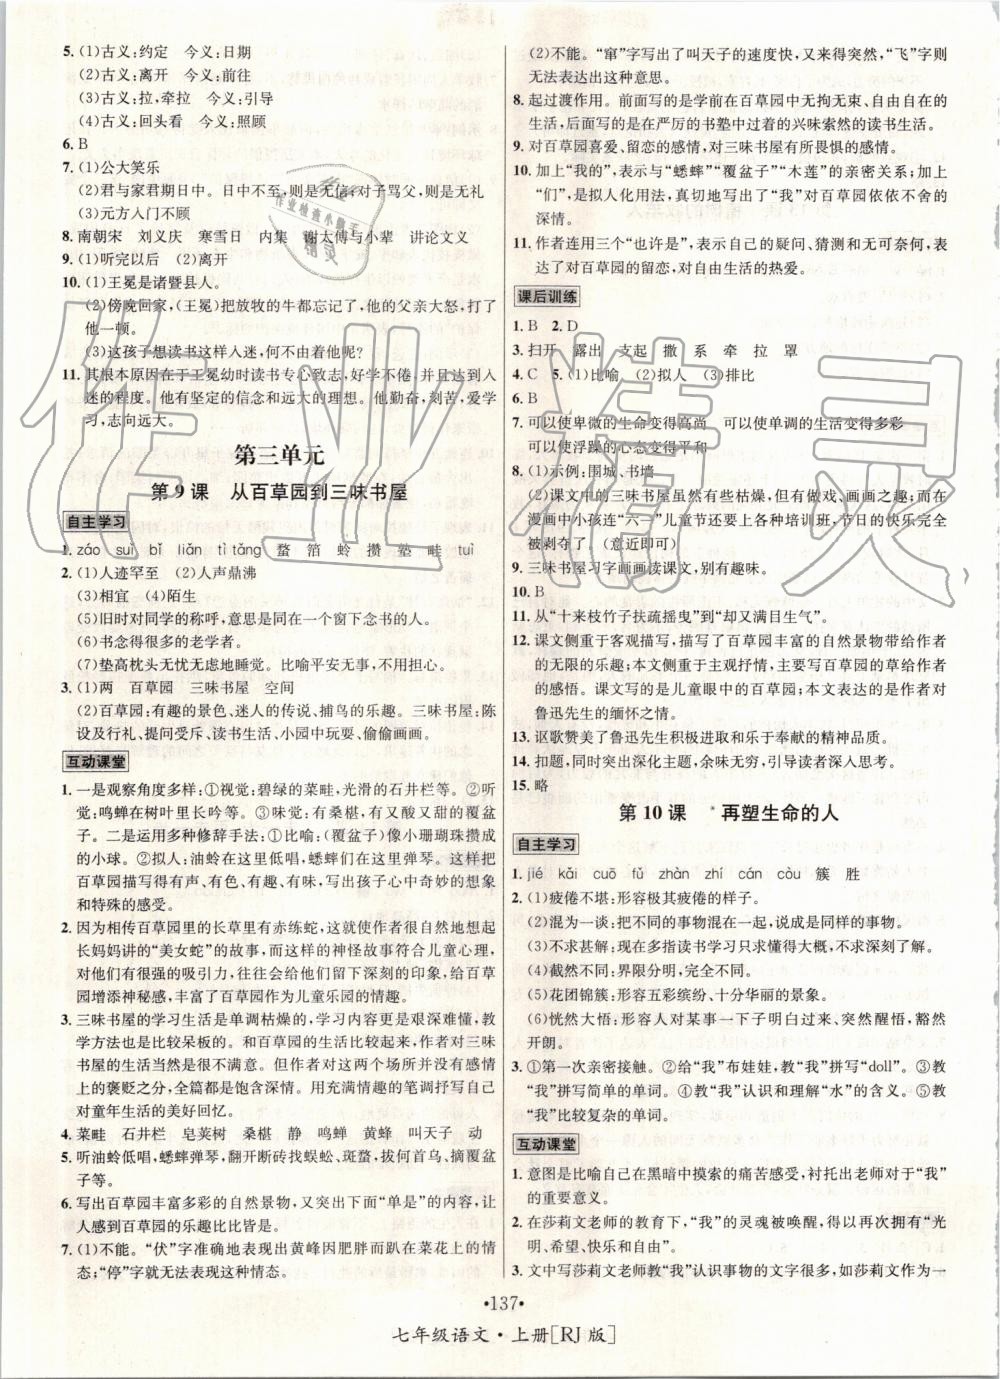 5. (1)古义:约定　今义:日期
(2)古义:离开　今义:前往
(3)古义:拉,牵拉　今义:引导
(4)古义:回头看　今义:照顾
6. B
7. (1)公大笑乐
(2)君与家君期日中。日中不至,则是无信;对子骂父,则是无礼
(3)元方入门不顾
8. 南朝宋　刘义庆　寒雪日　内集　谢太傅与小辈　讲论文义
9. (1)听完以后　(2)离开
10. (1)王冕是诸暨县人。
(2)傍晚回家,(王冕)把放牧的牛都忘记了,他的父亲大怒,打了
他一顿。
(3)这孩子想读书这样入迷,何不由着他呢?
11. 其根本原因在于王冕幼时读书专心致志,好学不倦,并且达到入
迷的程度。他有坚定的信念和远大的理想。他勤奋,刻苦,爱学
习,志向远大。
第三单元
第9课　从百草园到三味书屋
自主学习
1. záo　suì　bǐ　liǎn　tì tǎng　蝥　箔　蛉　攒　墊　畦　tuì
2. (1)人迹罕至　(2)人声鼎沸
(3)相宜　(4)陌生
(5)旧时对同学的称呼,意思是同在一个窗下念书的人。
(6)书念得很多的老学者。
(7)垫高枕头无忧无虑地睡觉。比喻平安无事,不用担心。
3. (1)两　百草园　三味书屋　空间
(2)百草园:有趣的景色、迷人的传说、捕鸟的乐趣。三味书屋:陈
设及行礼、提问受斥、读书生活、小园中玩耍、偷偷画画。
互动课堂
1. 一是观察角度多样:①视觉:碧绿的菜畦,光滑的石井栏等。②听
觉:鸣蝉在树叶里长吟等。③味觉:有桑椹,有又酸又甜的覆盆子
等。二是运用多种修辞手法:①比喻:(覆盆子)像小珊瑚珠攒成
的小球。②拟人:油蛉在这里低唱,蟋蟀们在这里弹琴。这样把
百草园描写得有声、有色、有味、有趣,写出孩子心中奇妙的想象
和特殊的感受。
2. 因为相传百草园里的长草里有赤练蛇,这使作者很自然地想起
长妈妈讲的“美女蛇”的故事,而这样的神怪故事符合儿童心理,
对他有很强的吸引力,往往会给他们留下深刻的印象,给百草
园增添神秘感,丰富了百草园作为儿童乐园的情趣。
3. 三味书屋的学习生活是单调枯燥的,学习内容更是艰深难懂,教
学方法也是比较呆板的。和百草园的生活比较起来,作者对三味
书屋的生活是很不满意。但作者对这两个场所并没有进行感情
上的褒贬之分,全篇都是饱含深情。用充满情趣的笔调抒写自己
对童年生活的美好回忆。
4. 菜畦　石井栏　皂荚树　桑椹　静　鸣蝉　黄蜂　叫天子　动
5. 听油蛉低唱,蟋蟀弹琴,翻开断砖找蜈蚣、斑蝥,拔何首乌,摘覆盆
子等。
6. 写出百草园丰富多彩的自然景物,又突出下面“单是”的内容,让
人感到百草园的乐趣比比皆是。
7. (1)不能。“伏”字准确地表现出黄蜂因肥胖而趴在菜花上的情
态;“停”字就无法表现这种情态。
(2)不能。“窜”字写出了叫天子的速度快,又来得突然,“飞”字则
无法表达出这种意思。
8. 起过渡作用。前面写的是学前在百草园中无拘无束、自由自在的
生活,后面写的是在严厉的书塾中过着的兴味索然的读书生活。
9. 对百草园喜爱、留恋的感情,对三味书屋有所畏惧的感情。
10. 加上“我的”,表示与“蟋蟀”“覆盆子”“木莲”的亲密关系;加上
“们”,是拟人化用法,真切地写出了“我”对百草园依依不舍的
深情。
11. 作者连用三个“也许是”,表示自己的疑问、猜测和无可奈何,表
达了对百草园的留恋,对自由生活的热爱。
课后训练
1. B　2. D
3. 扫开　露出　支起　撒　系　牵　拉　罩
4. C　5. (1)比喻　(2)拟人　(3)排比
6. B
7. 可以使卑微的生命变得高尚　可以使单调的生活变得多彩
可以使浮躁的心态变得平和
8. (1)示例:围城、书墙
(2)课文中的三味书屋虽然有些枯燥,但有做戏、画画之趣;而在
漫画中小孩连“六一”儿童节还要上各种培训班,节日的快乐完全
被剥夺了。(意近即可)
9. 三味书屋习字画画读课文,别有趣味。
10. B
11. 从“十来枝竹子扶疏摇曳”到“却又满目生气”。
12. 课文侧重于客观描写,描写了百草园丰富的自然景物带给作者
的无限的乐趣;本文侧重于主观抒情,主要写百草园的草给作者
的感悟。课文写的是儿童眼中的百草园;本文表达的是作者对
鲁迅先生的缅怀之情。
13. 讴歌赞美了鲁迅先生积极进取和乐于奉献的精神品质。
14. 扣题,同时突出深化主题,余味无穷,引导读者深入思考。
15. 略
第10课　*再塑生命的人
自主学习
1. jié　kǎi　cuō　fǔ　zhàn　zhí　cán　còu　簇　胜
2. (1)疲倦不堪:形容极其疲倦的样子。
(2)混为一谈:把不同的事物混在一起,说成是同样的事物。
(3)不求甚解:现在多指读书学习只求懂得大概,不求深刻了解。
(4)截然不同:界限分明,完全不同。
(5)花团锦簇:形容五彩缤纷、十分华丽的景象。
(6)恍然大悟:形容人对某事一下子明白过来、突然醒悟,豁然
开朗。
3. ①第一次亲密接触。②给“我”布娃娃,教“我”拼写“doll”。③教
“我”拼写简单的单词。④教“我”认识和理解“水”的含义。⑤教
“我”比较复杂的单词。
互动课堂
1. 意图是比喻自己在黑暗中摸索的痛苦感受,衬托出老师对于“我”
的重要意义。
2. 在莎莉文老师的教育下,“我”的灵魂被唤醒,得以再次拥有“光
明、希望、快乐和自由”。
3. 文中写莎莉文老师教“我”认识事物的文字很多,如莎莉文作为一
·137·
七年级语文·上册[RJ版]
作业精灵
作业检查小帮手
精灵